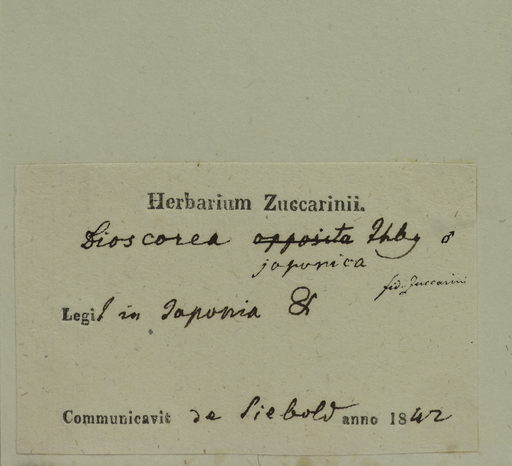 Herbarium Zuccarinii.
Dioscorea opposita Thbg ♂
japonica
fid. Zuccarini
Legit in Japonia &
Communicavit de Siebold anno 1842